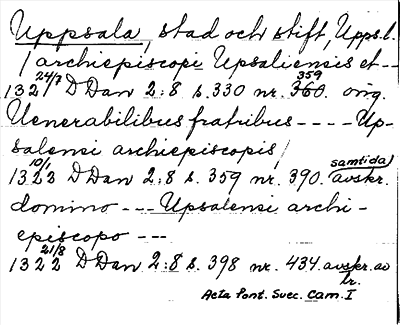 Uppsala, stad och stift, Upps. l.
/archiepiscopi Upsaliensis et --
1321 24/7 D Dan 2:8 s. 330 nr. 360. 359 orig.
Venerabilibus fratribus ---- Up-
salensi archiepiscopis/
1323 10/1 D Dan 2:8 s. 359 nr. 390. samtida avskr.
domino --- Upsalensi archi-
episcopo ---
1322 21/8 D Dan 2:8 s. 398 nr. 434. avskr. av
br.
Acta Pont. Svec. Cam. I